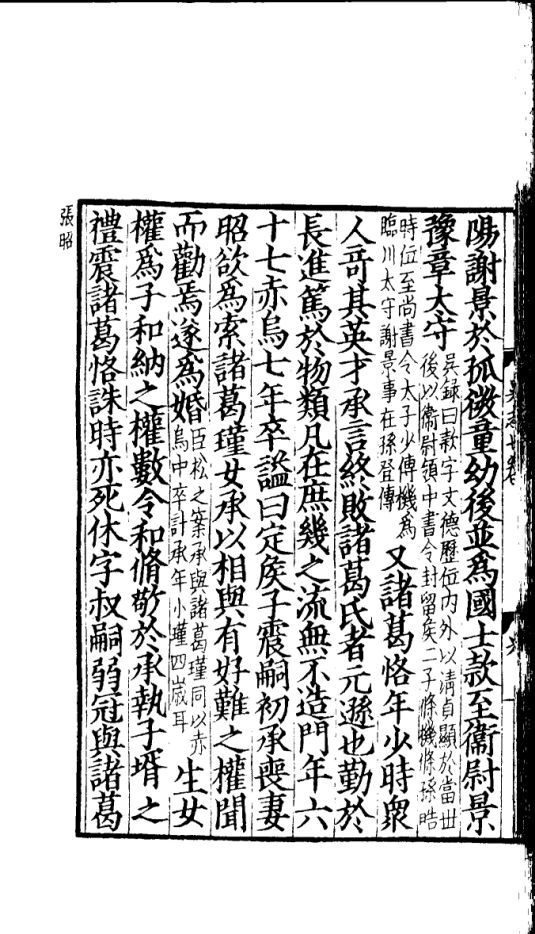 陽謝景於孤微童幼後並為國士款至衞尉景
豫章大守
吳錄曰款字文德歷位內外以清貞顯於當世
後以衞尉領中書令封留矦二子條機條孫晧
時位至尚書令太子少傅機為
臨川太守謝景事在孫登傳
又諸葛恪年少時衆
人奇其英才承言終敗諸葛氏者元遜也勤於
長進篤於物類凡在庶幾之流無不造門年六
十七赤烏七年卒謚曰定矦子震嗣初承喪妻
昭欲為索諸葛瑾女承以相與有好難之權聞
而勸焉遂為婚
臣松之案承與諸葛瑾同以赤
烏中卒計承年小瑾四歲耳
生女
權為子和納之權數令和脩敬於承執子壻之
禮震諸葛恪誅時亦死休字叔嗣弱冠與諸葛
張昭